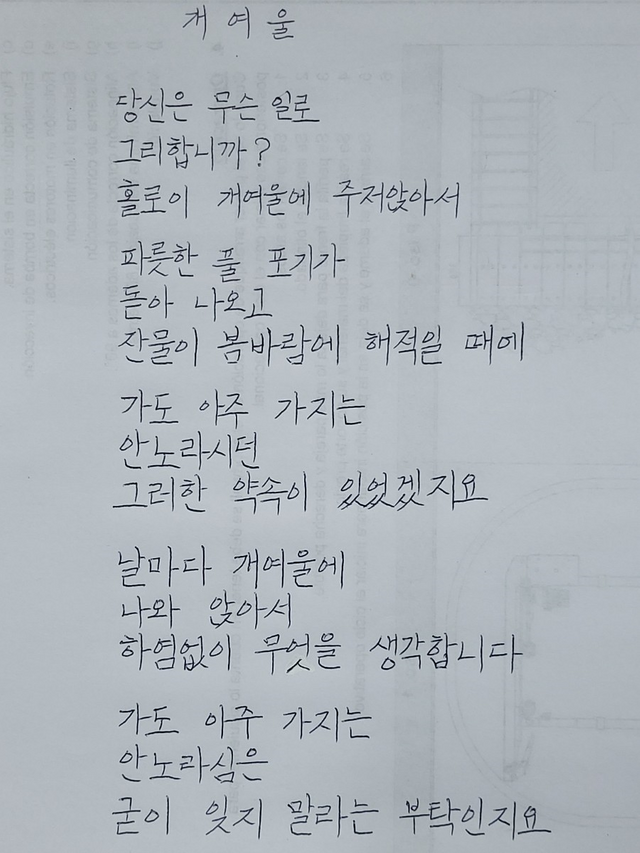 개여울
당신은 무슨 일로
그리합니까?
홀로이 개여울에 주저앉아서
파릇한 풀 포기가
돋아 나오고
잔물이 봄바람에 해적일 때에
가도 아주 가지는
안노라시던
그러한 약속이 있었겠지요
날마다 개여울에
나와 앉아서
하염없이 무엇을 생각합니다
가도 아주 가지는
안노라심은
굳이 잊지 말라는 부탁인지요